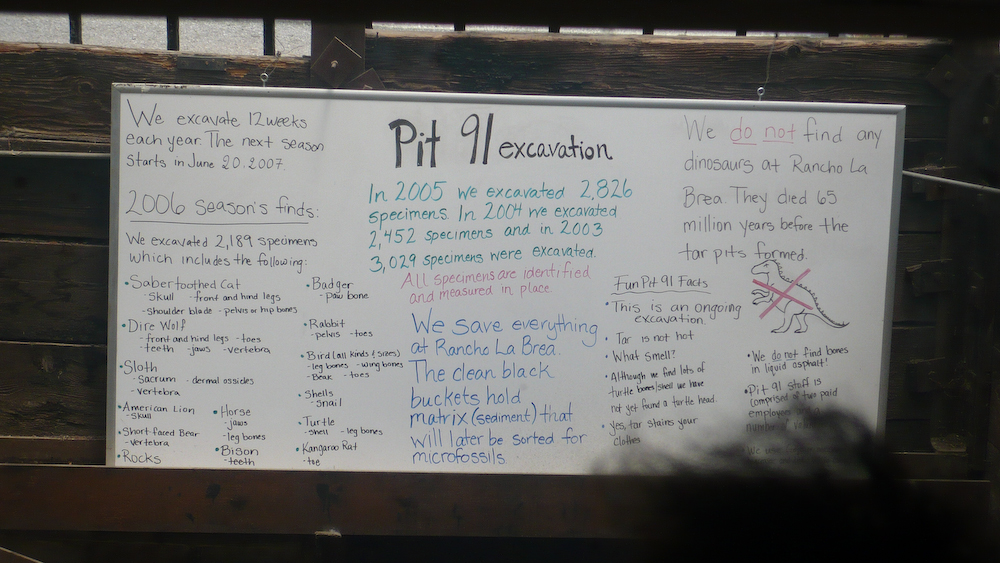 We excavate 12 weeks
each year. The next season
starts in June 20. 2007.
2006 season's finds:
We excavated 2,189 specimens
which includes the following:
• Sabertoothed Cat
-Skull -front and hind legs
-Shoulder blade -pelvis or hip bones
• Dire Wolf
-front and hind legs -toes
-teeth -jaws -vertebra
• Sloth
-Sacrum -dermal ossicles
-vertebra
• American Lion
-Skull
• Short-faced Bear
-vertebra
• Rocks
• Horse
-jaws
-leg bones
• Bison
-teeth
• Badger
-paw bone
• Rabbit
-pelvis -toes
• Bird (all kinds & sizes)
-leg bones -wing bones
-Beak -toes
• Shells
-snail
• Turtle
-shell -leg bones
• Kangaroo Rat
-toe
Pit 91 excavation
In 2005 we excavated 2,826
specimens. In 2004 we excavated
2,452 specimens and in 2003
3,029 specimens were excavated.
All specimens are identified
and measured in place.
We save everything
at Rancho La Brea.
The clean black
buckets hold
matrix (sediment) that
will later be sorted for
microfossils.
We do not find any
dinosaurs at Rancho La
Brea. They died 65
million years before the
tar pits formed.
Fun Pit 91 Facts
• This is an ongoing
excavation.
• Tar is not hot
• What smell?
• Although we find lots of
turtle bones/shell we have
not yet found a turtle head.
• Yes, tar stains your
clothes
• We do not find bones
in liquid asphalt!
• Pit 91 staff is
comprised of two paid